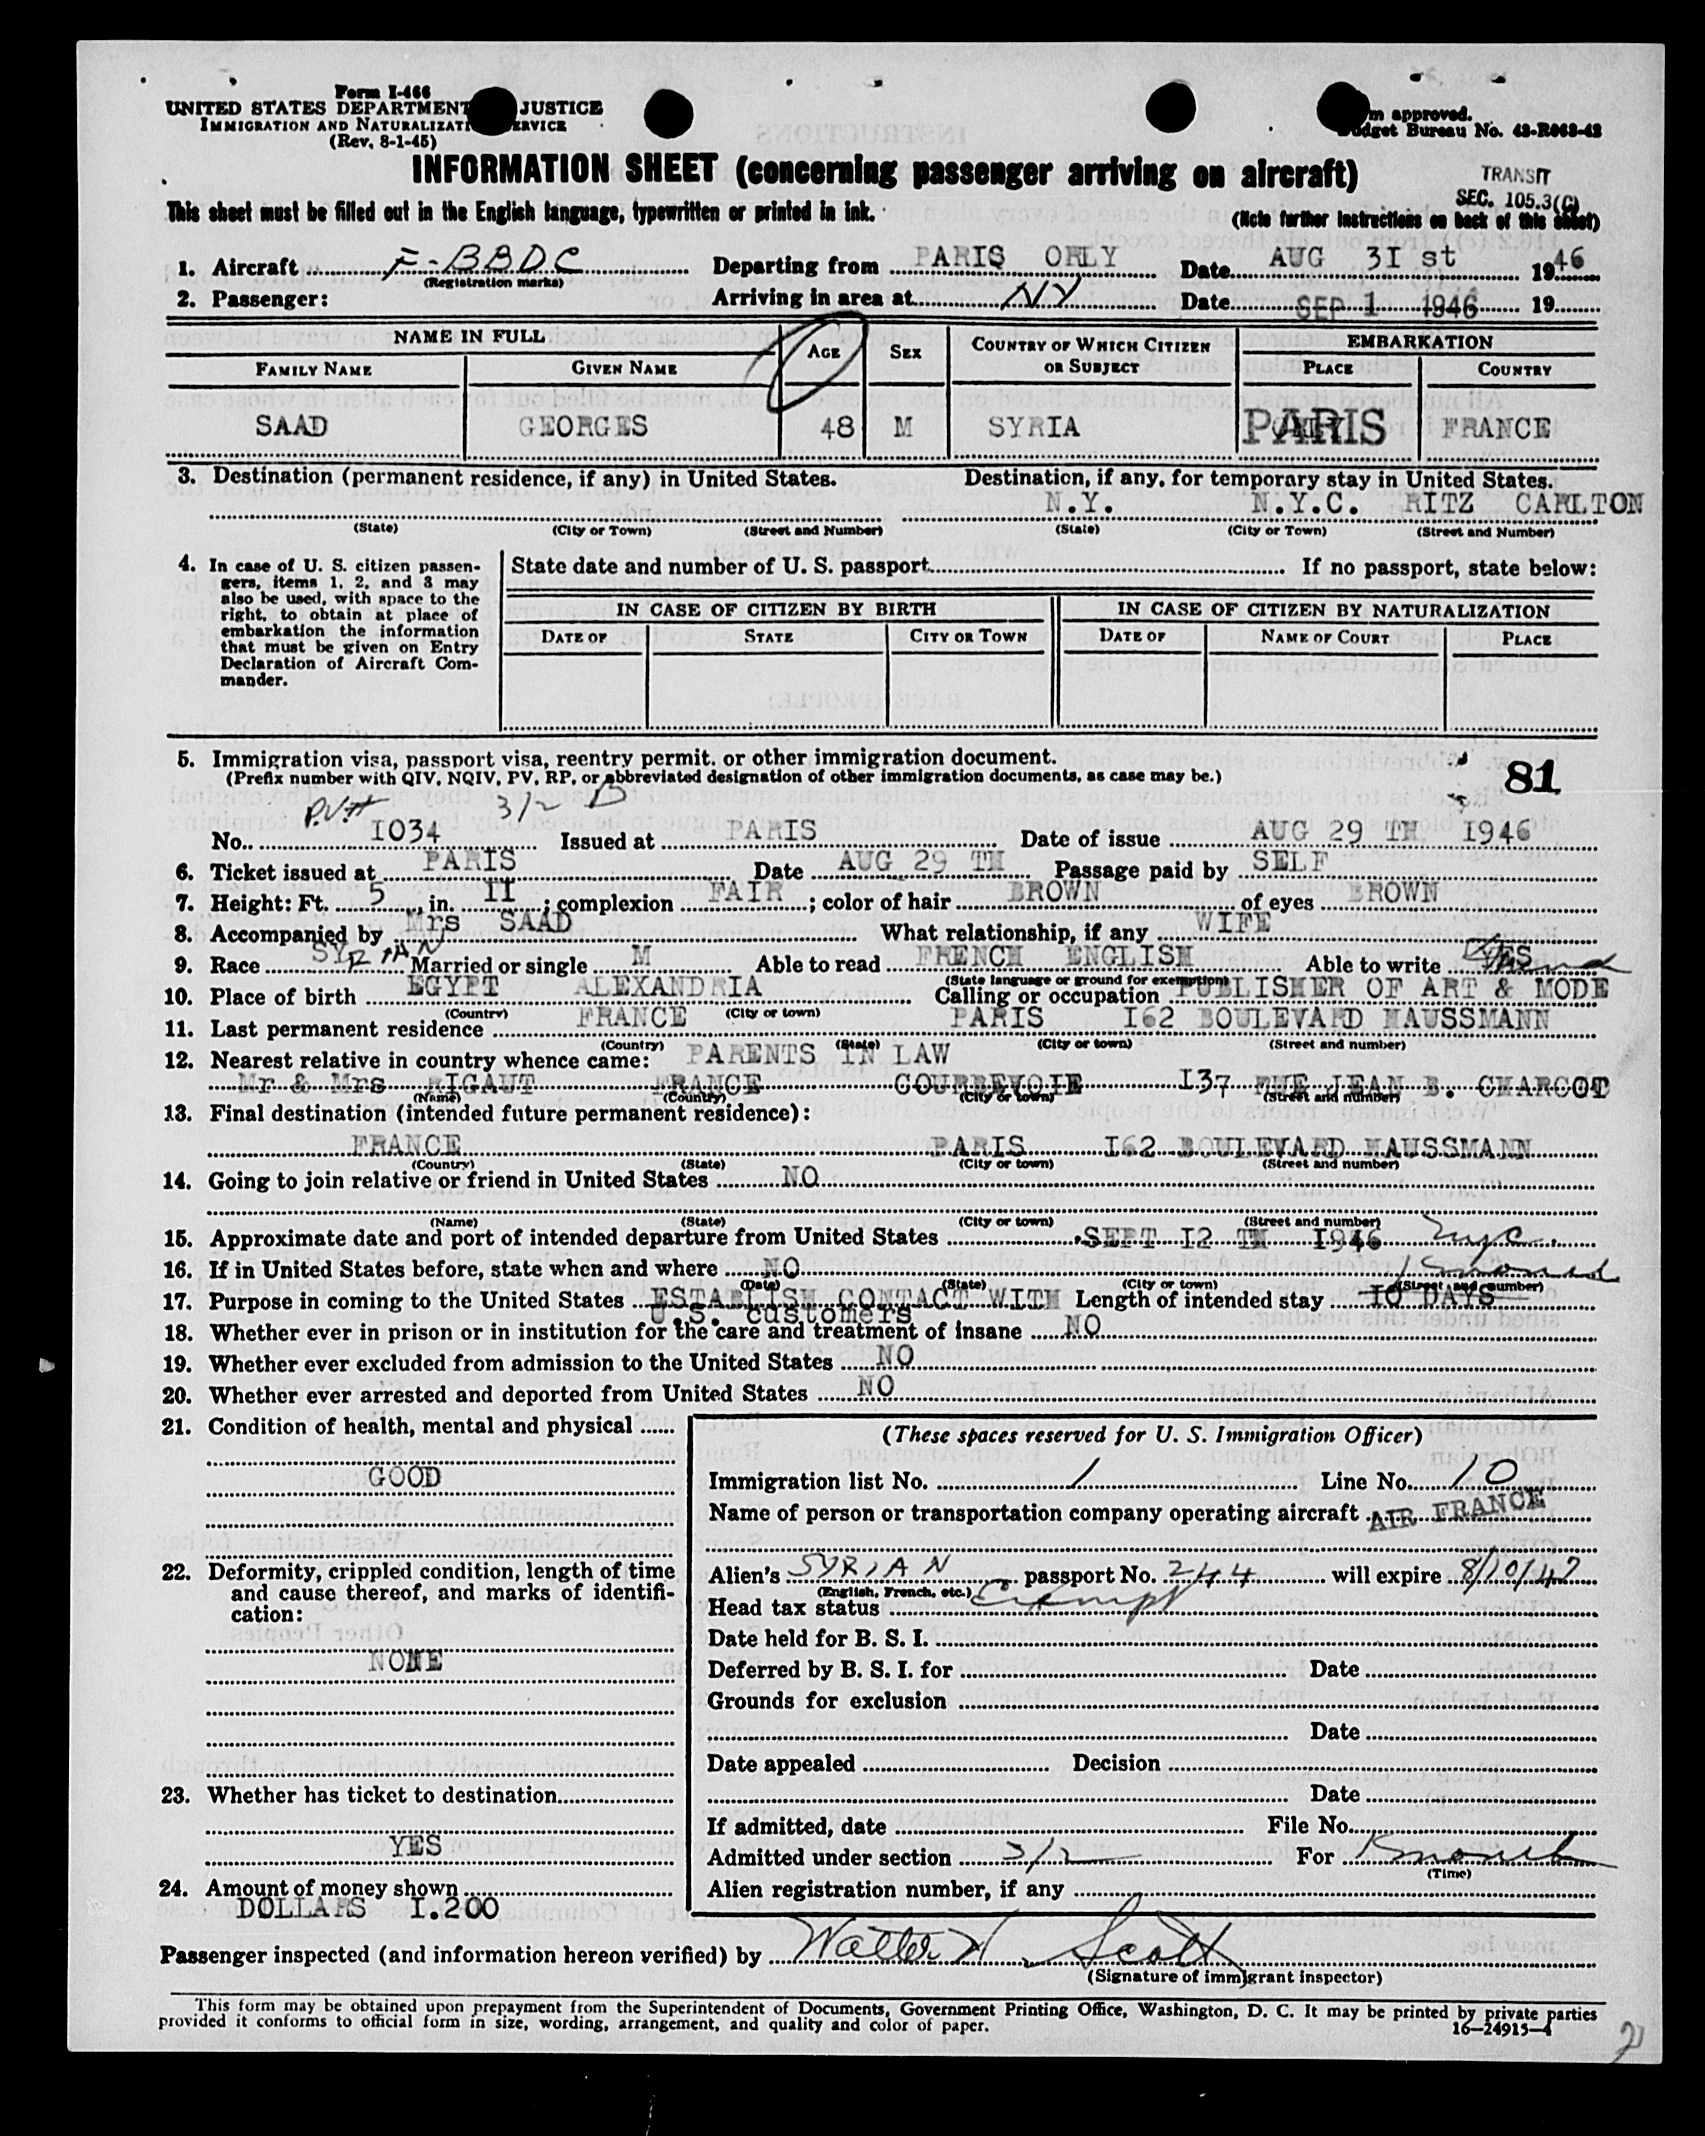 Form I-466
UNITED STATES DEPARTMENT JUSTICE
IMMIGRATION AND NATURALIZATI ERVICE
(Rev. 8-1-45)
m approved.
dget Bureau No. 43-R063-42
INFORMATION SHEET (concerning passenger arriving on aircraft)
TRANSIT
SEC. 105.3(C)
This sheet must be filled out in the English language, typewritten or printed in ink.
(Note further instructions on back of this sheet)
1. Aircraft F-BBDC Departing from PARIS ORLY Date AUG 3I st 1946
(Registration marks)
2. Passenger: Arriving in area at NY Date SEP 1 1946 19
NAME IN FULL AGE SEX COUNTRY OF WHICH CITIZEN OR SUBJECT EMBARKATION
FAMILY NAME GIVEN NAME PLACE COUNTRY
SAAD GEORGES 48 M SYRIA PARIS FRANCE
3. Destination (permanent residence, if any) in United States. Destination, if any, for temporary stay in United States.
N.Y. N.Y.C. RITZ CARLTON
(State) (City or Town) (Street and Number) (State) (City or Town) (Street and Number)
4. In case of U. S. citizen passen-
gers, items 1, 2, and 3 may
also be used, with space to the
right, to obtain at place of
embarkation the information
that must be given on Entry
Declaration of Aircraft Com-
mander.
State date and number of U. S. passport If no passport, state below:
IN CASE OF CITIZEN BY BIRTH IN CASE OF CITIZEN BY NATURALIZATION
DATE OF STATE CITY OR TOWN DATE OF NAME OF COURT PLACE
5. Immigration visa, passport visa, reentry permit, or other immigration document.
(Prefix number with QIV, NQIV, PV, RP, or abbreviated designation of other immigration documents, as case may be.)
81
P.V.# 3/2 B
No. I034 Issued at PARIS Date of issue AUG 29 TH I946
6. Ticket issued at PARIS Date AUG 29 TH Passage paid by SELF
7. Height: Ft. 5, in. II; complexion FAIR; color of hair BROWN of eyes BROWN
8. Accompanied by Mrs SAAD What relationship, if any WIFE
9. Race SYRIAN Married or single M Able to read FRENCH ENGLISH Able to write YES
(State language or ground for exemption)
10. Place of birth EGYPT ALEXANDRIA Calling or occupation PUBLISHER OF ART & MODE
(Country) (City or town)
11. Last permanent residence FRANCE PARIS I62 BOULEVARD HAUSSMANN
(Country) (State) (City or town) (Street and number)
12. Nearest relative in country whence came: PARENTS IN LAW
Mr & Mrs RIGAUT FRANCE COURBEVOIE I37 RUE JEAN B. CHARCOT
(Name) (Country) (City or town) (Street and number)
13. Final destination (intended future permanent residence):
FRANCE PARIS I62 BOULEVARD HAUSSMANN
(Country) (State) (City or town) (Street and number)
14. Going to join relative or friend in United States NO
(Name) (State) (City or town) (Street and number)
15. Approximate date and port of intended departure from United States SEPT I2 TH I946 nyc.
16. If in United States before, state when and where NO
(Date) (State) (City or town) (Street and number)
17. Purpose in coming to the United States ESTABLISH CONTACT WITH Length of intended stay IO DAYS
U.S. customers
18. Whether ever in prison or in institution for the care and treatment of insane NO
19. Whether ever excluded from admission to the United States NO
20. Whether ever arrested and deported from United States NO
21. Condition of health, mental and physical
GOOD
22. Deformity, crippled condition, length of time
and cause thereof, and marks of identifi-
cation:
NONE
23. Whether has ticket to destination
YES
24. Amount of money shown
DOLLARS I.200
(These spaces reserved for U. S. Immigration Officer)
Immigration list No. 1 Line No. 10
Name of person or transportation company operating aircraft AIR FRANCE
Alien's SYRIAN passport No. 244 will expire 8/10/47
(English, French, etc.)
Head tax status Exempt
Date held for B. S. I.
Deferred by B. S. I. for Date
Grounds for exclusion
Date
Date appealed Decision
Date
If admitted, date File No.
Admitted under section 3/2 For 1 month
(Time)
Alien registration number, if any
Passenger inspected (and information hereon verified) by Walter H. Scott
(Signature of immigrant inspector)
This form may be obtained upon prepayment from the Superintendent of Documents, Government Printing Office, Washington, D. C. It may be printed by private parties
provided it conforms to official form in size, wording, arrangement, and quality and color of paper.
16—24915-4